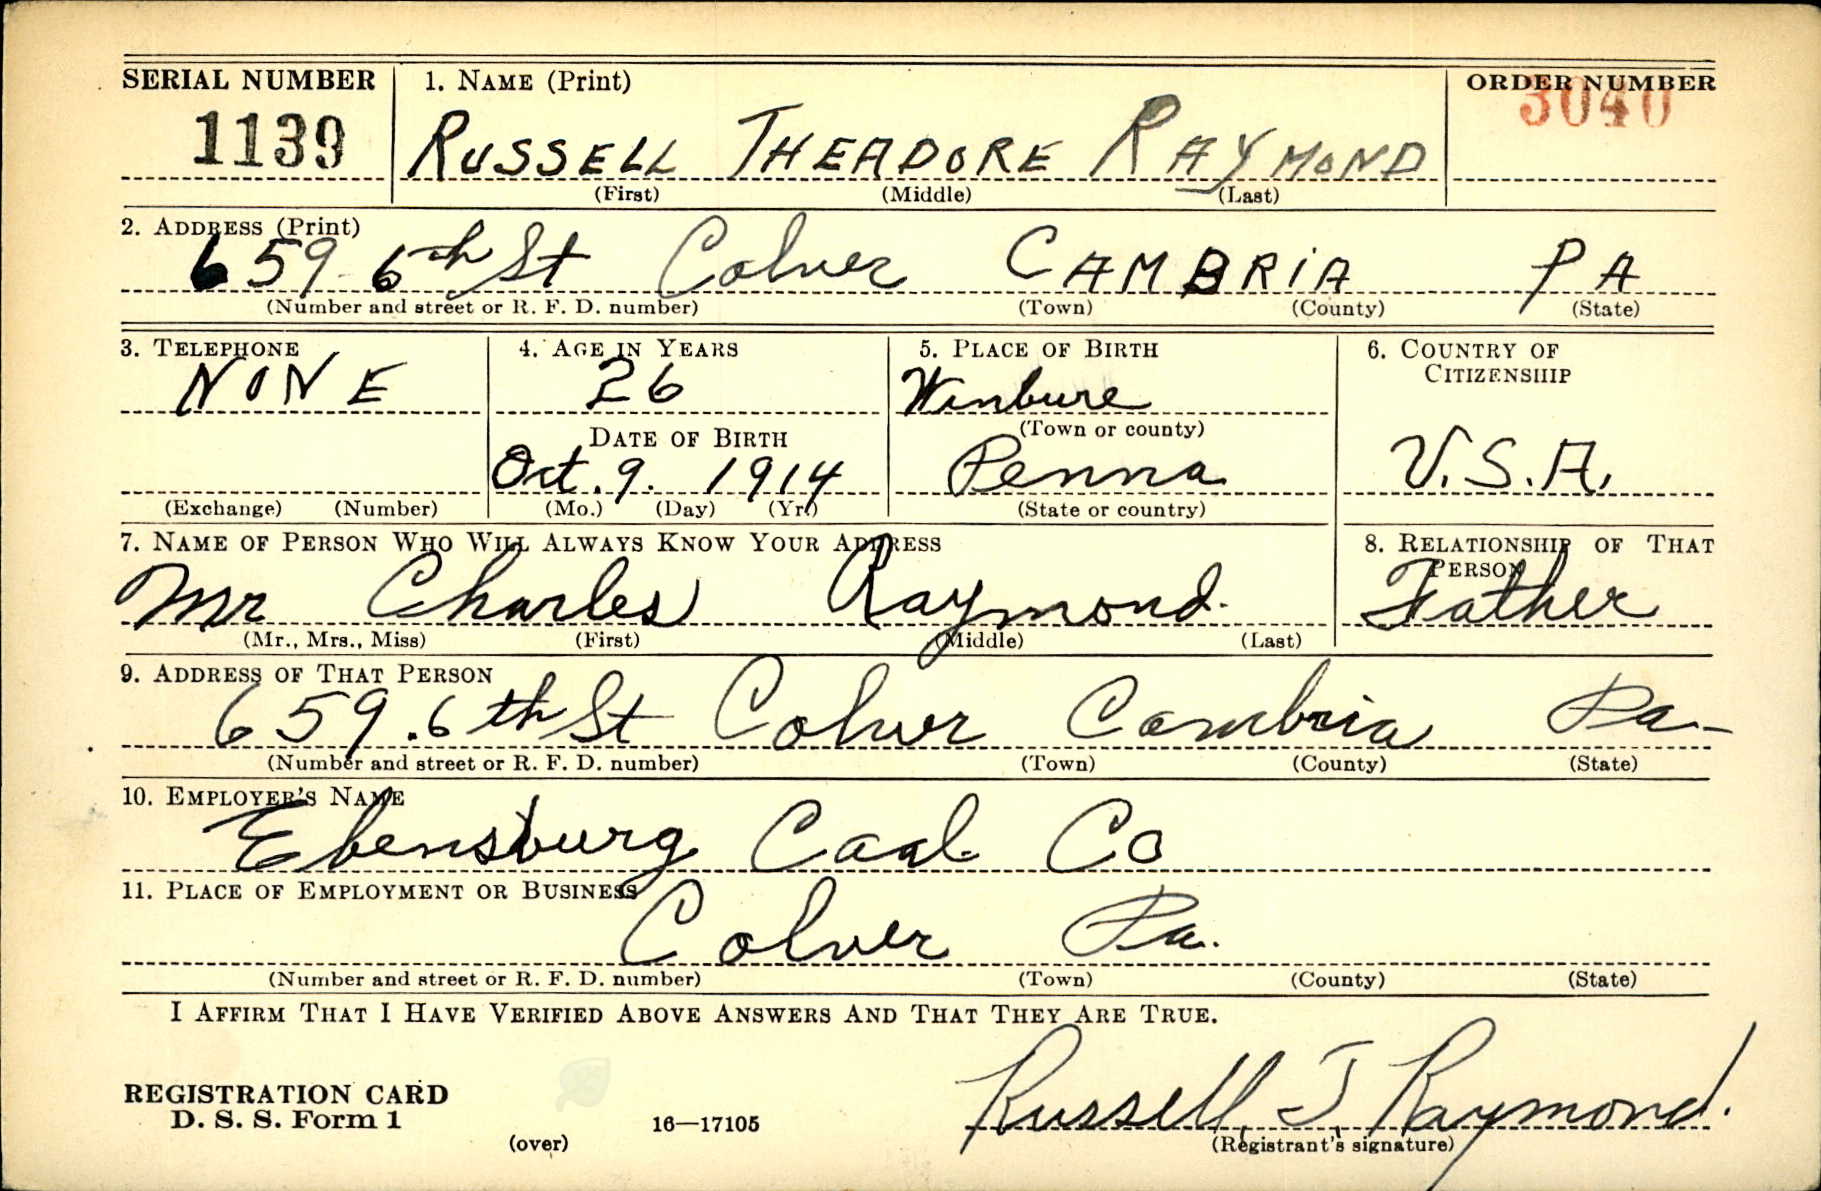 SERIAL NUMBER 1. NAME (Print) ORDER NUMBER
1139 RUSSELL THEADORE RAYMOND 3040
(First) (Middle) (Last)
2. ADDRESS (Print)
659 6th St Colver CAMBRIA PA
(Number and street or R. F. D. number) (Town) (County) (State)
3. TELEPHONE 4. AGE IN YEARS 5. PLACE OF BIRTH 6. COUNTRY OF
CITIZENSHIP
NONE 26 Winbure
(Town or county)
DATE OF BIRTH
Oct. 9. 1914 Penna U.S.A.
(Exchange) (Number) (Mo.) (Day) (Yr.) (State or country)
7. NAME OF PERSON WHO WILL ALWAYS KNOW YOUR ADDRESS 8. RELATIONSHIP OF THAT
PERSON
Mr Charles Raymond. Father
(Mr., Mrs., Miss) (First) (Middle) (Last)
9. ADDRESS OF THAT PERSON
659. 6th St Colver Cambria Pa-
(Number and street or R. F. D. number) (Town) (County) (State)
10. EMPLOYER'S NAME
Ebensburg Coal Co
11. PLACE OF EMPLOYMENT OR BUSINESS
Colver Pa.
(Number and street or R. F. D. number) (Town) (County) (State)
I AFFIRM THAT I HAVE VERIFIED ABOVE ANSWERS AND THAT THEY ARE TRUE.
Russell T Raymond.
REGISTRATION CARD
D. S. S. Form 1 16—17105
(over) (Registrant's signature)